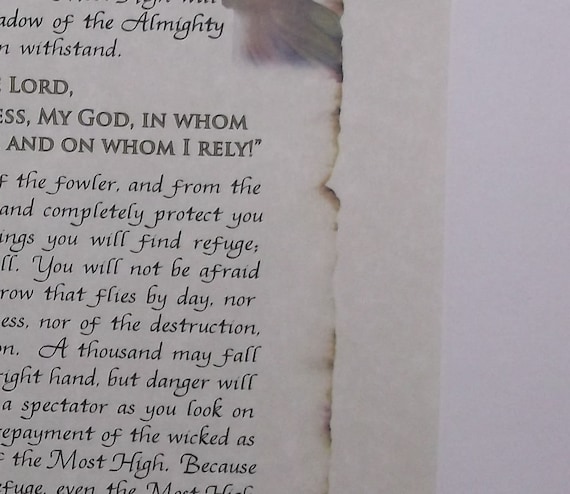 adow of the Almighty
withstand.
LORD,
ESS, MY GOD, IN WHOM
AND ON WHOM I RELY!"
f the fowler, and from the
and completely protect you
ings you will find refuge;
ll. You will not be afraid
row that flies by day, nor
ess, nor of the destruction,
on. A thousand may fall
right hand, but danger will
a spectator as you look on
repayment of the wicked as
f the Most High. Because
efuge, even the Most High